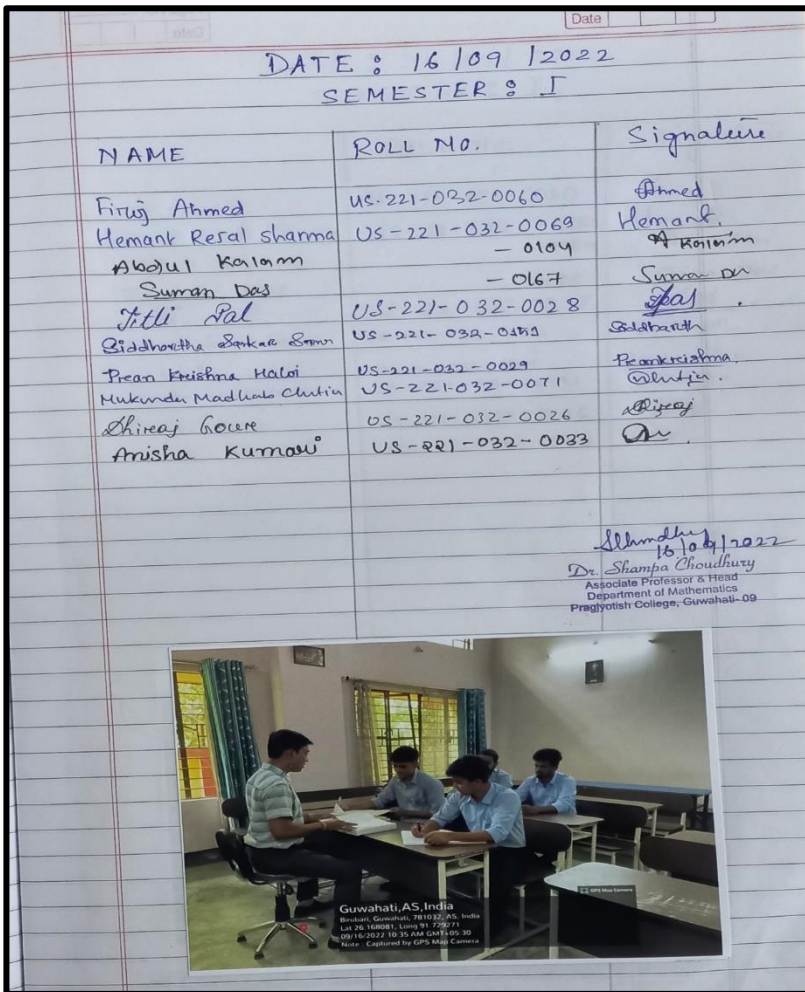 Date
DATE : 16/09/2022
SEMESTER : I
NAME ROLL NO. Signature
Firuj Ahmed US-221-032-0060 Ahmed
Hemant Resal Sharma US-221-032-0069 Hemant.
Abdul Kalam - 0104 A Kalam
Suman Das - 0167 Suman Das
Titli Pal US-221-032-0028 Tpal
Siddhartha Sankar US-221-032- Siddharth
Prean Kreishna Haloi US-221-032-0029 Preankreishna
Mukunda Madhab Chutia US-221-032-0071 Chutia.
Dhireaj Gowre US-221-032-0026 Dhireaj
Anisha Kumari US-221-032-0033
16/09/2022
Dr. Shampa Choudhury
Associate Professor & Head
Department of Mathematics
Pragjyotish College, Guwahati- 09
GPS Map Camera
Guwahati,AS,India
Birubari, Guwahati, 781032, AS, India
Lat 26.168081, Long 91.729271
09/16/2022 10:35 AM GMT+05:30
Note : Captured by GPS Map Camera